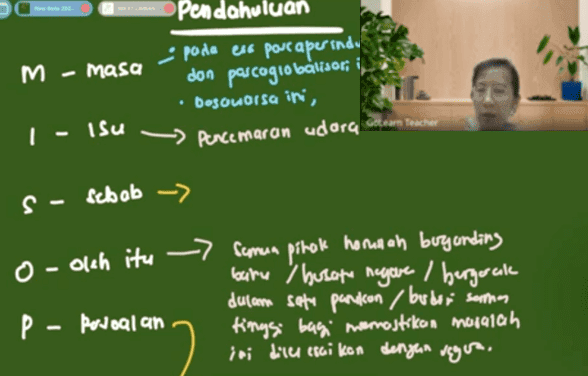 Pendahuluan
M - masa
: pada era pascaperindu
dan pascaglobalisasi i
• Dasawarsa ini,
GoLearn Teacher
I - Isu → Pencemaran udara
S - Sebab →
O - oleh itu → Semua pihak haruslah berganding
bahu / bersatu negara / bergerak
dalam satu pasukan /
tinggi bagi memastikan masalah
ini diselesaikan dengan segera.
P - Persoalan